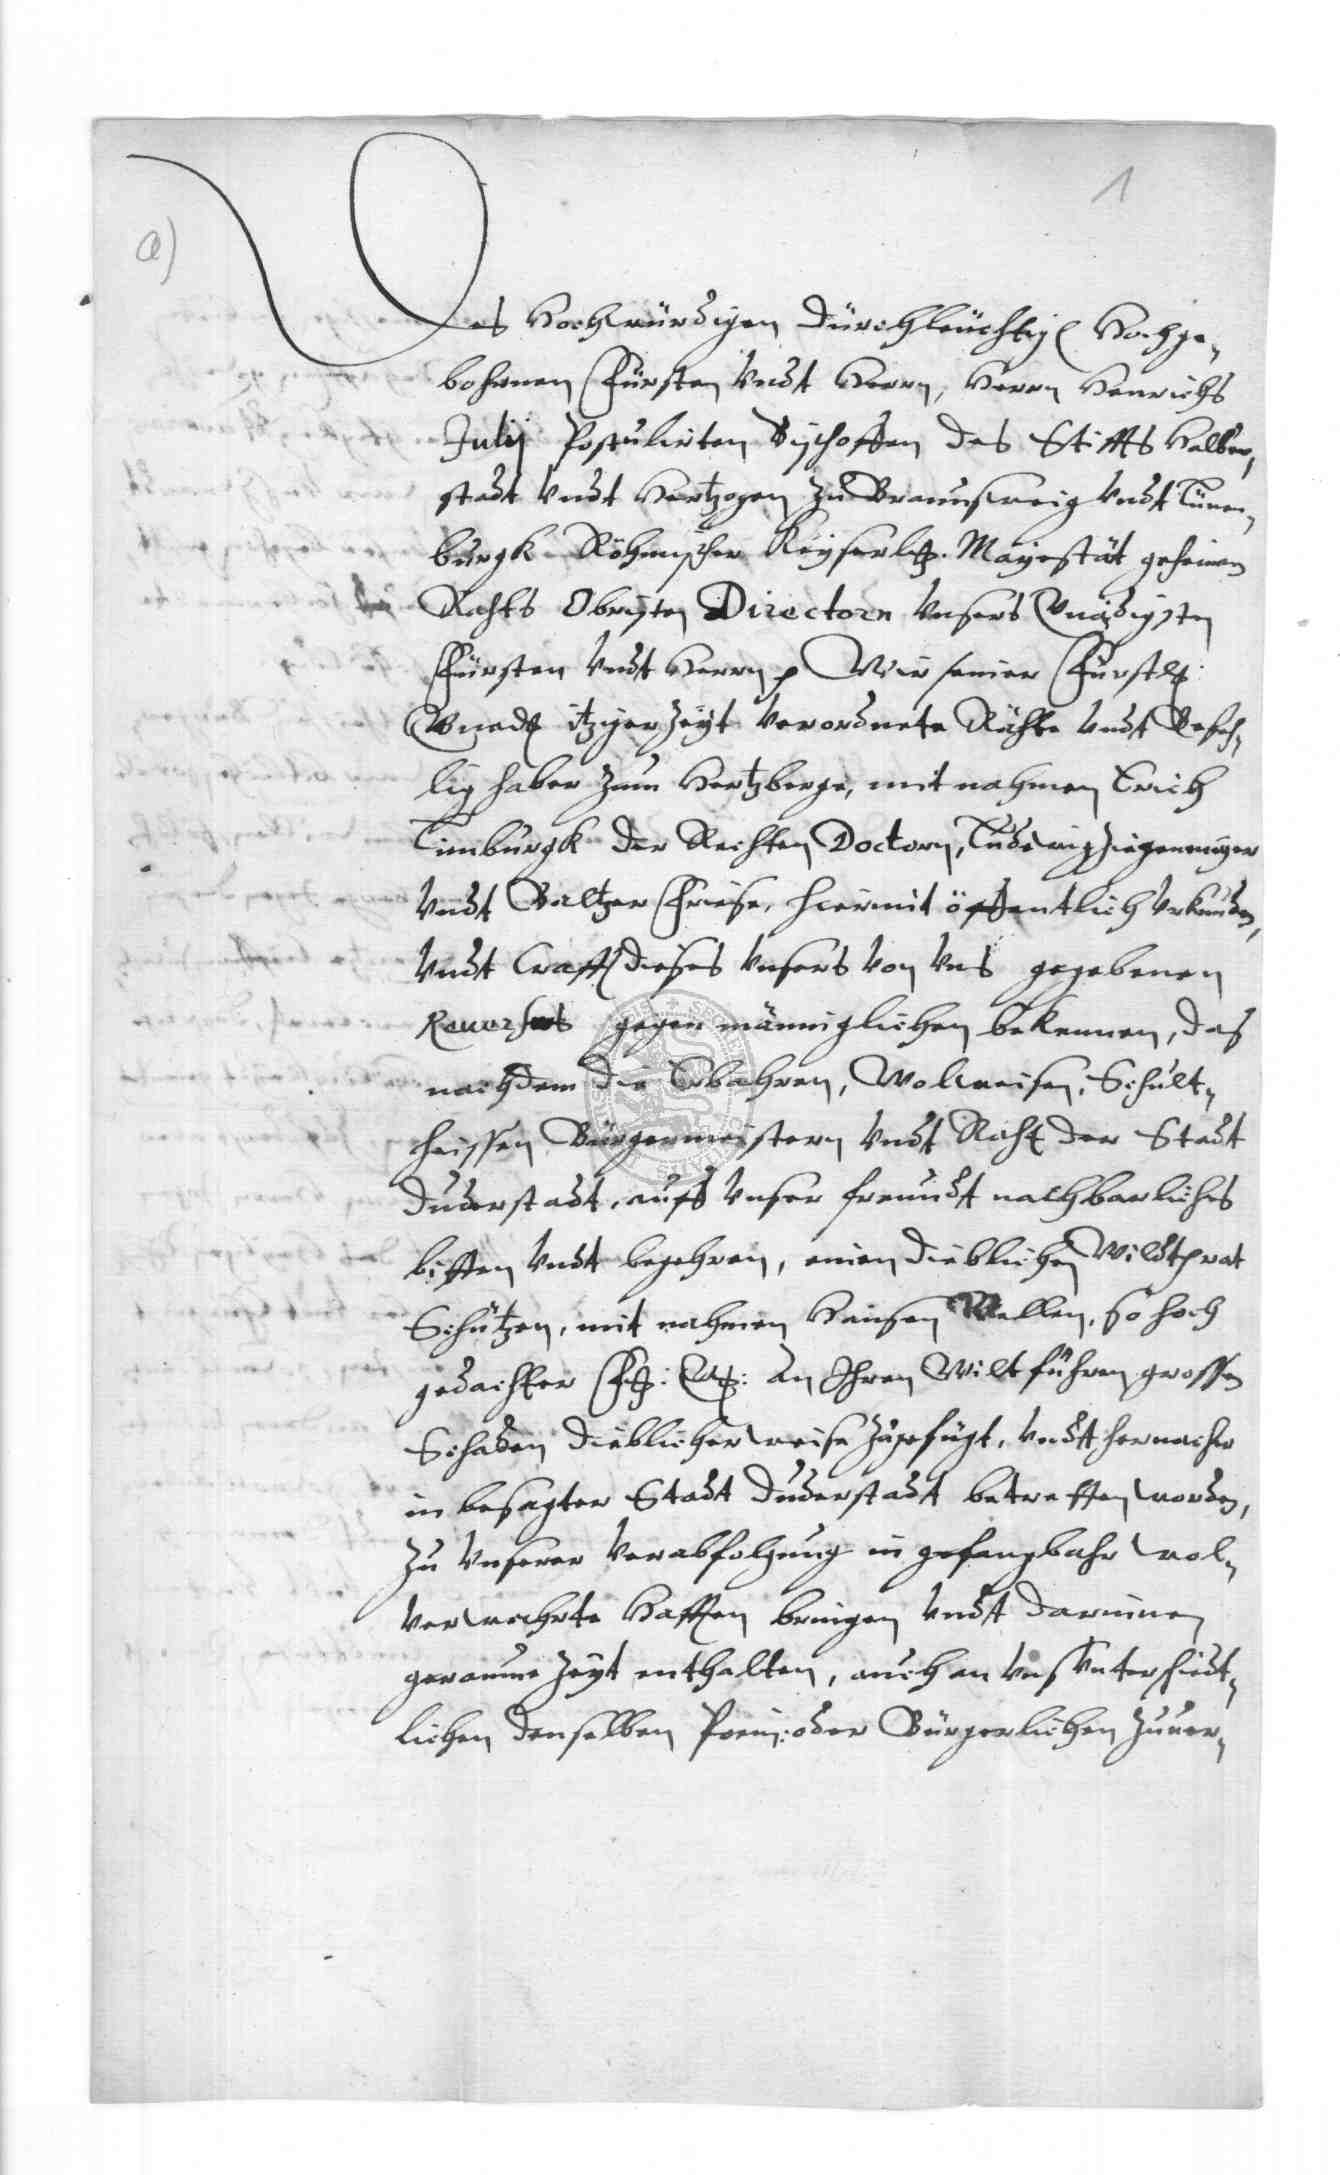 1
a)
Des Hochwürdigen Durchleuchtigen Hochge„
bohrnen Fürsten Undt Herrn, Herrn Henrichs
Julij Postulirten Bischoffen des Stiffts Halber„
stadt Undt Hertzogen zu Braunschweig Undt Lünen„
burgk Röhmischer Keyserl. Mayestät geheimen
Rahts Obristen Directorn Unsers Gnädigsten
Fürsten Undt Herrn p Wir seiner Fürstl:
Gnad itziger Zeyt Verordnete Rähte Undt Befeh„
lig haber zum Hertzberge, mit nahmen Erich
Limburgk der Rechten Doctorn, Ludewig Ziegenmeyer
Undt Baltzer Friese, hiermit öffentlich Urkunden,
Undt Crafft dieses Unsers Von Uns gegebenen
Reuerses gegen männiglichen bekennen, das
nachdem die Erbahren, Wolweisen, Schult„
heissen Bürgermeistern Undt Raht der Stadt
Duderstadt, auff Unser freundt nachbarliches
bitten Undt begehren, einen dieblichen Wildtprat
Schützen, mit nahmen Hansen Wellen, so hoch
gedachter F: G: an Ihren Wiltführen grossen
Schaden dieblicher weise zugefügt, Undt hernacher
in besagter Stadt Duderstadt betretten worden,
zu Unserer Verabfolgung in gefangbahr wol„
Verwahrte Hafften bringen Undt darinnen
geraume Zeyt enthalten, auch an Uns Unterschiedt„
lichen denselben Pein: oder Bürgerlichen zuuer„